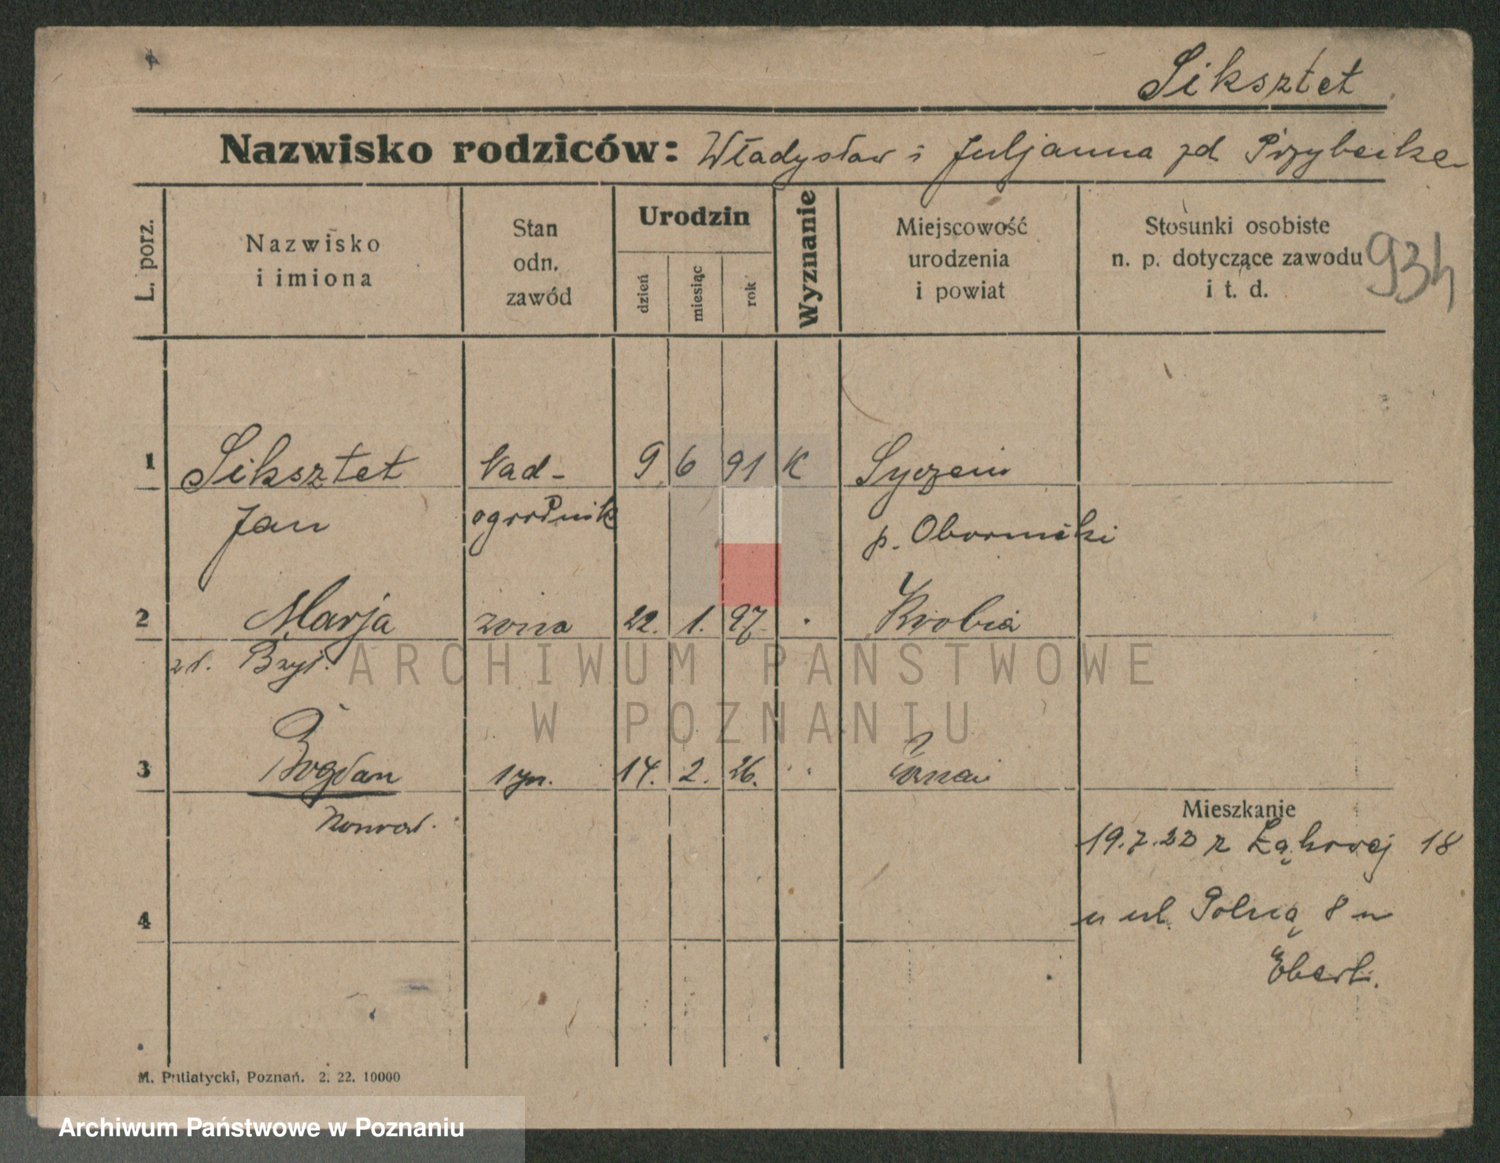 Siksztet
Nazwisko rodziców: Władysław i Juljanna zd Przybecka
L. porz.
Nazwisko
i imiona
Stan
odn.
zawód
Urodzin
dzień
miesiąc
rok
Wyznanie
Miejscowość
urodzenia
i powiat
Stosunki osobiste
n. p. dotyczące zawodu
i t. d.
934
1 Siksztet Nad- 9 6 91 K
Jan ogrodnik p. Oborniki
2 Marja żona 22. 1. 97 Krobia
zd. Bzyl.
3 Bogdan syn. 14. 2. 26.
Konrad.
Mieszkanie
19.7.22 z Łąkowej 18
4 u ul. Polną 8 u
Ebert.
M. Putiatycki, Poznań. 2. 22. 10000
ARCHIWUM PAŃSTWOWE
W POZNANIU
Archiwum Państwowe w Poznaniu